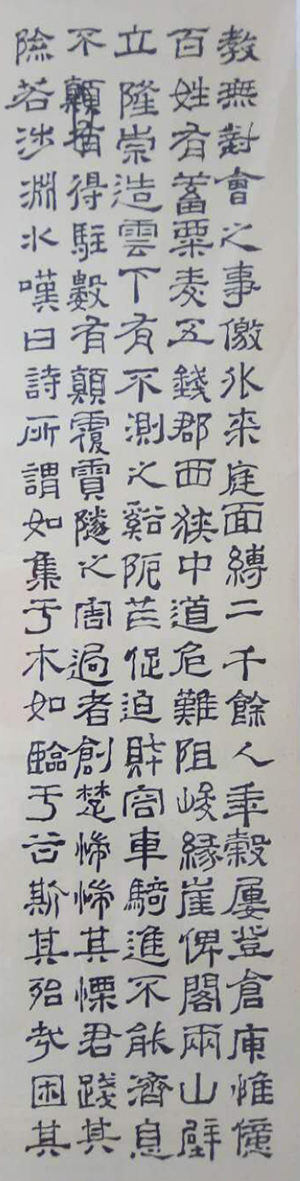 教無對會之事儌外来庭面縛二千餘人秊穀屢登倉庾惟億
百姓有蓄粟麦五錢郡西狹中道危難阻峻緣崖俾閣兩山壁
立隆崇造雲下有不測之谿阨芒促迫財容車騎進不能濟息
不得駐數有顛覆霣隧之害過者創楚惴惴其慄君踐其
險若涉淵水嘆曰詩所謂如集于木如臨于谷斯其殆哉困其